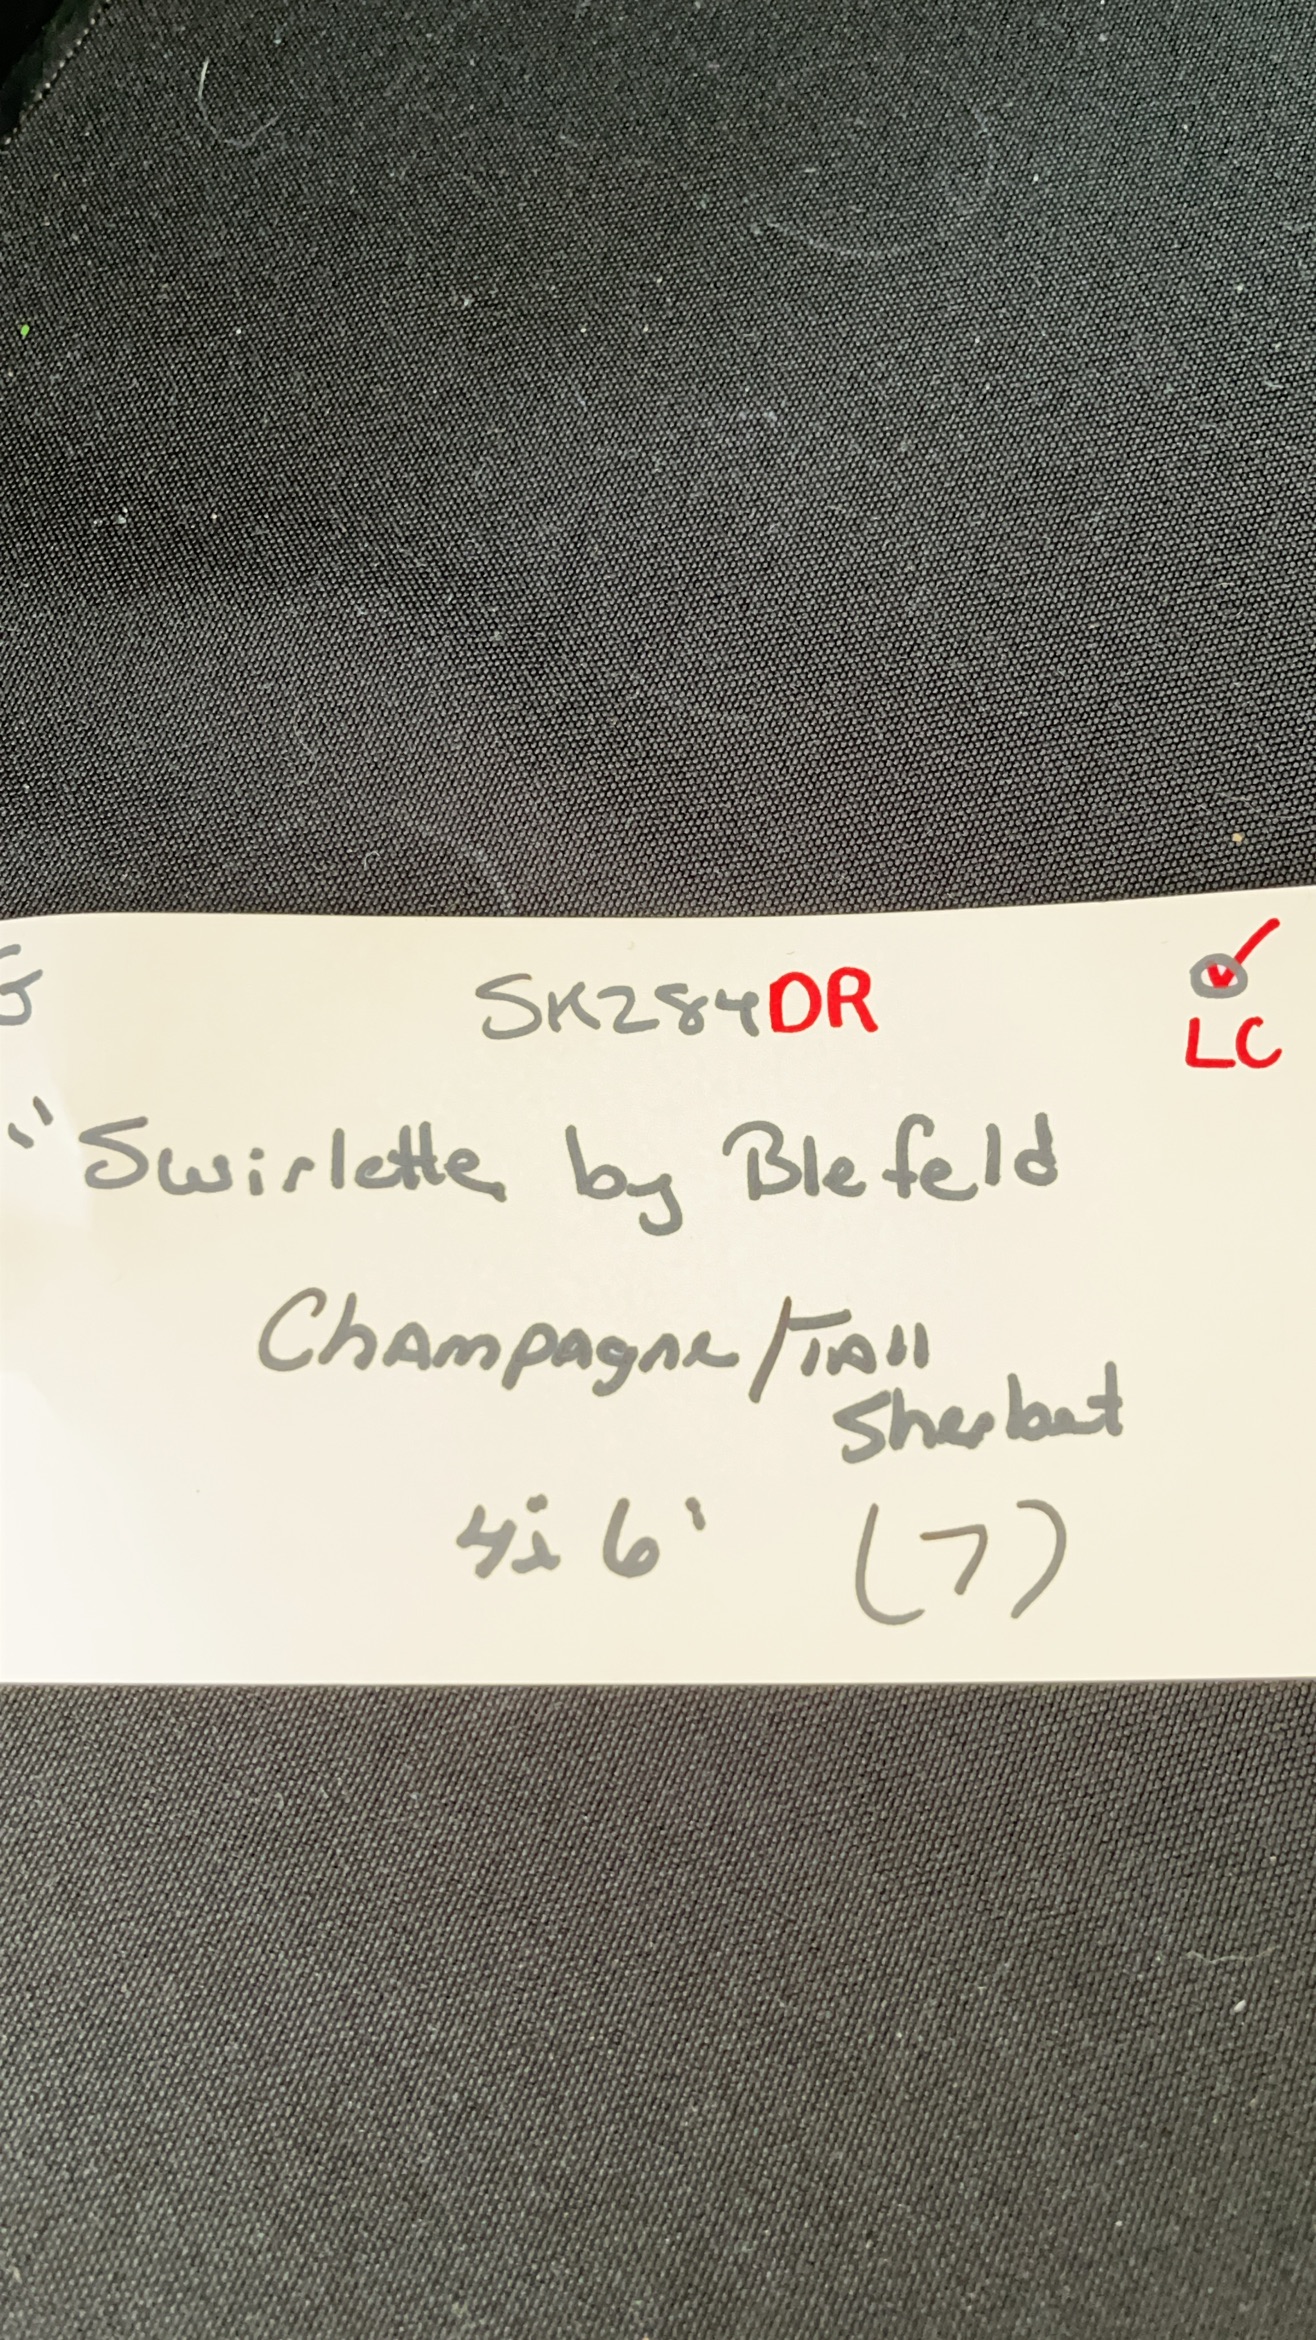 G SK284DR LC
"Swirlette by Blefeld
Champagne/Tall
Sherbet
4i 6' (7)